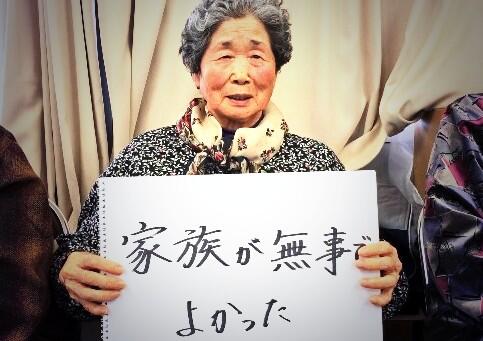 家族が無事で
よかった